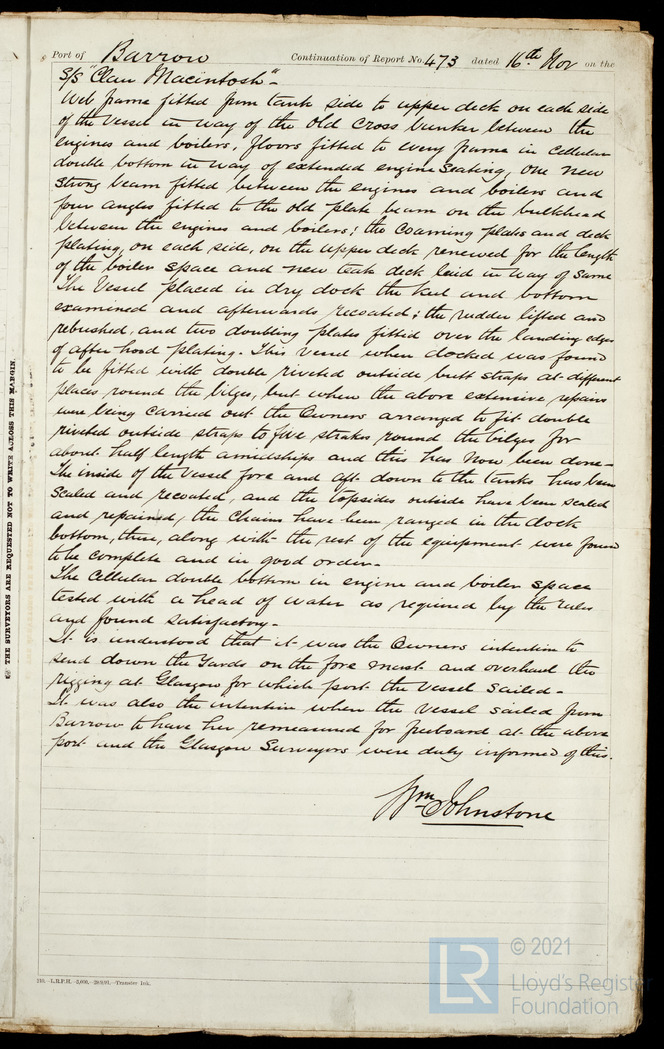 Port of Barrow Continuation of Report No. 473 dated 16th Nov on the
S/S "Clan Macintosh" -
Web frame fitted from tank side to upper deck on each side
of the Vessel in way of the old cross bunker between the
engines and boilers, floors fitted to every frame in cellular
double bottom in way of extended engine seating, one new
strong beam fitted between the engines and boilers and
four angles fitted to the old plate beam on the bulkhead
between the engines and boilers; the coaming plates and deck
plating, on each side, on the upper deck renewed for the length
of the boiler space and new teak deck laid in way of same
The Vessel placed in dry dock the keel and bottom
examined and afterwards recoated; the rudder lifted and
rebushed, and two doubling plates fitted over the landing edges
of after hood plating. This vessel when docked was found
to be fitted with double riveted outside butt straps at different
places round the bilges, but when the above extensive repairs
were being carried out the Owners arranged to fit double
riveted outside straps to five strakes round the bilges for
about half length amidships and this has now been done -
The inside of the Vessel fore and aft down to the tanks has been
scaled and recoated, and the topsides outside have been scaled
and repainted, the chains have been ranged in the dock
bottom, these, along with the rest of the equipment were found
to be complete and in good order -
The Cellular double bottom in engine and boiler space
tested with a head of water as required by the rules
and found satisfactory -
It is understood that it was the Owners intention to
send down the Yards on the fore mast and overhaul the
rigging at Glasgow for which port the Vessel sailed -
It was also the intention when the vessel sailed from
Barrow to have her remeasured for freeboard at the above
port and the Glasgow Surveyors were duly informed of this.
Wm Johnstone
THE SURVEYORS ARE REQUESTED NOT TO WRITE ACROSS THIS MARGIN.
L.R.P.H. Transfer Ink.
LR
© 2021
Lloyd's Register
Foundation